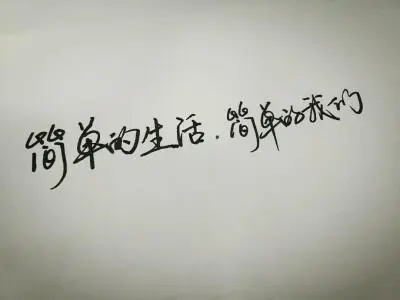 简单的生活.简单的我们